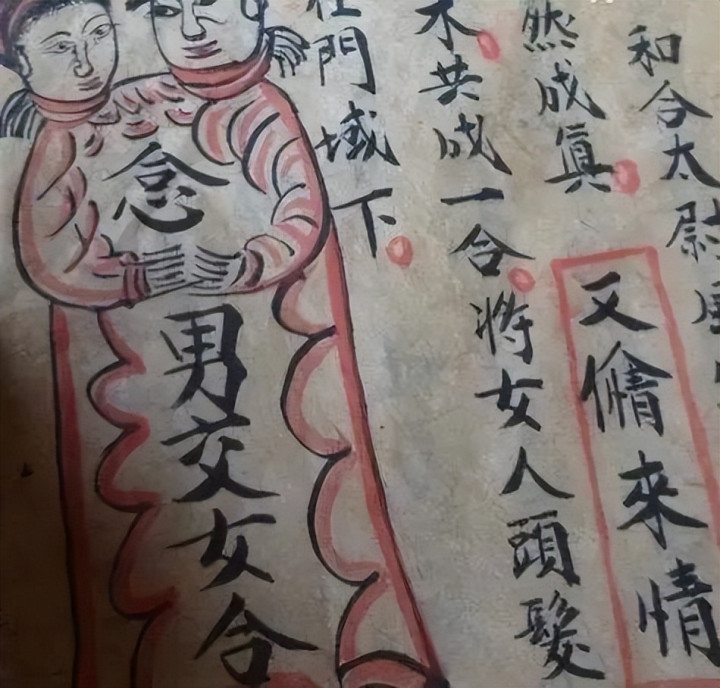 和合太尉
又來情
然成眞
共成一合將女人頭髮
門域下
念
男交女合